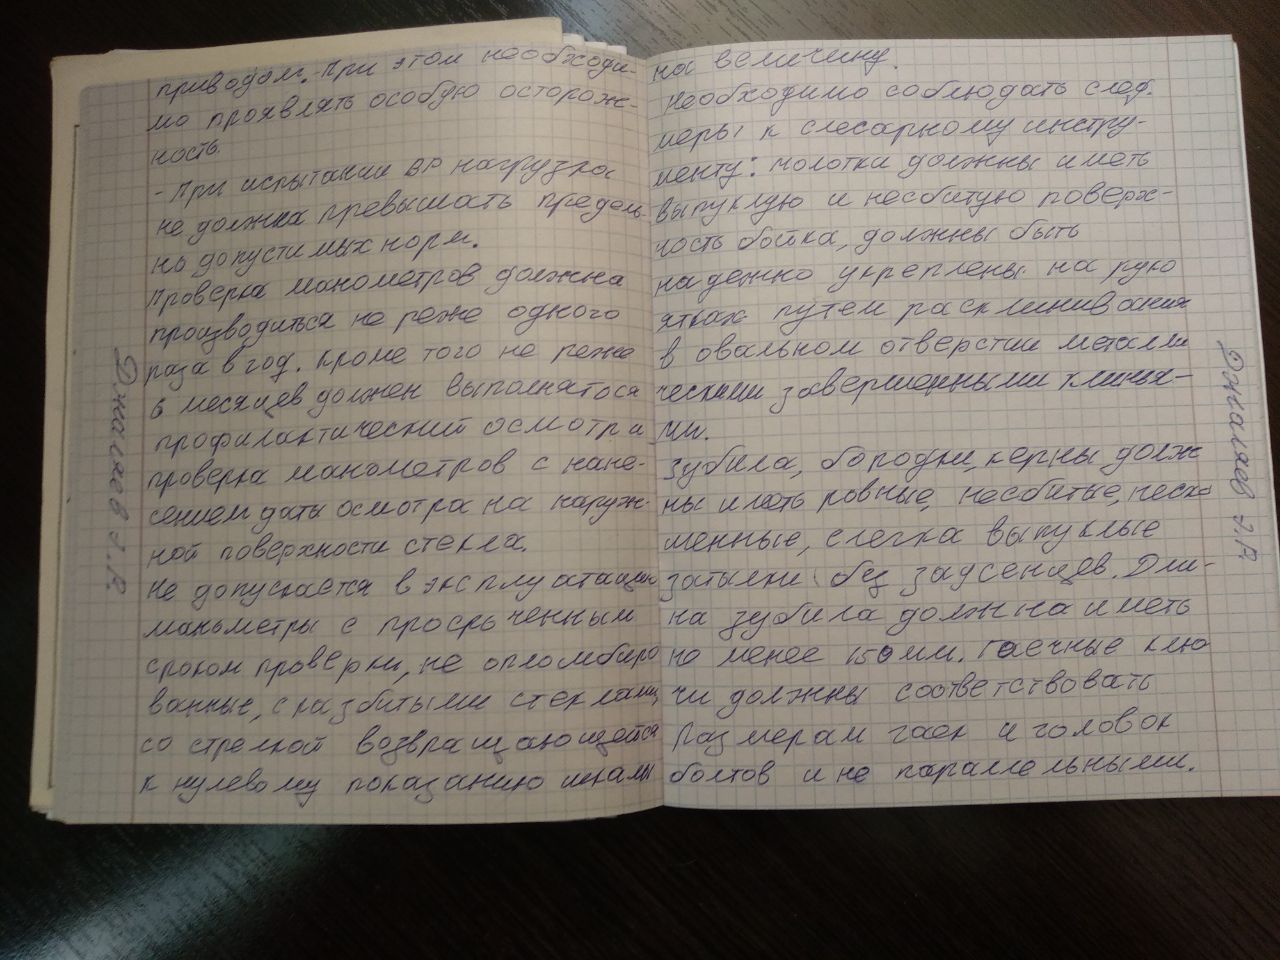 приводом. При этом необходи-
мо проявлять особую осторож-
ность.
- При испытании ВР нагрузка
не должна превышать предель-
но допустимых норм.
Проверка манометров должна
производиться не реже одного
раза в год. Кроме того не реже
6 месяцев должен выполняться
профилактический осмотр и
проверка манометров с нане-
сением даты осмотра на наруж-
ной поверхности стекла.
Не допускается в эксплуатации
манометры с просроченным
сроком проверки, не опломбиро
ванные, с разбитыми стеклами,
со стрелкой возвращающейся
к нулевому показанию шкалы
Джаляев Э.Р.
на величину.
Необходимо соблюдать след.
меры к слесарному инстру-
менту: молотки должны иметь
выпуклую и несбитую поверх-
ность бойка, должны быть
надежно укреплены на руко
ятках путем расклинивания
в овальном отверстии металли
ческими завершенными клинья-
ми.
Зубила, бородки, керны долж
ны иметь ровные, несбитые, неско
менные, слегка выпуклые
затылки без задсенцев. Дли-
на зубила должна иметь
не менее 150 мм. Гаечные клю
чи должны соответствовать
размерам гаек и головок
болтов и не параллельными.
Джаляев Э.Р.